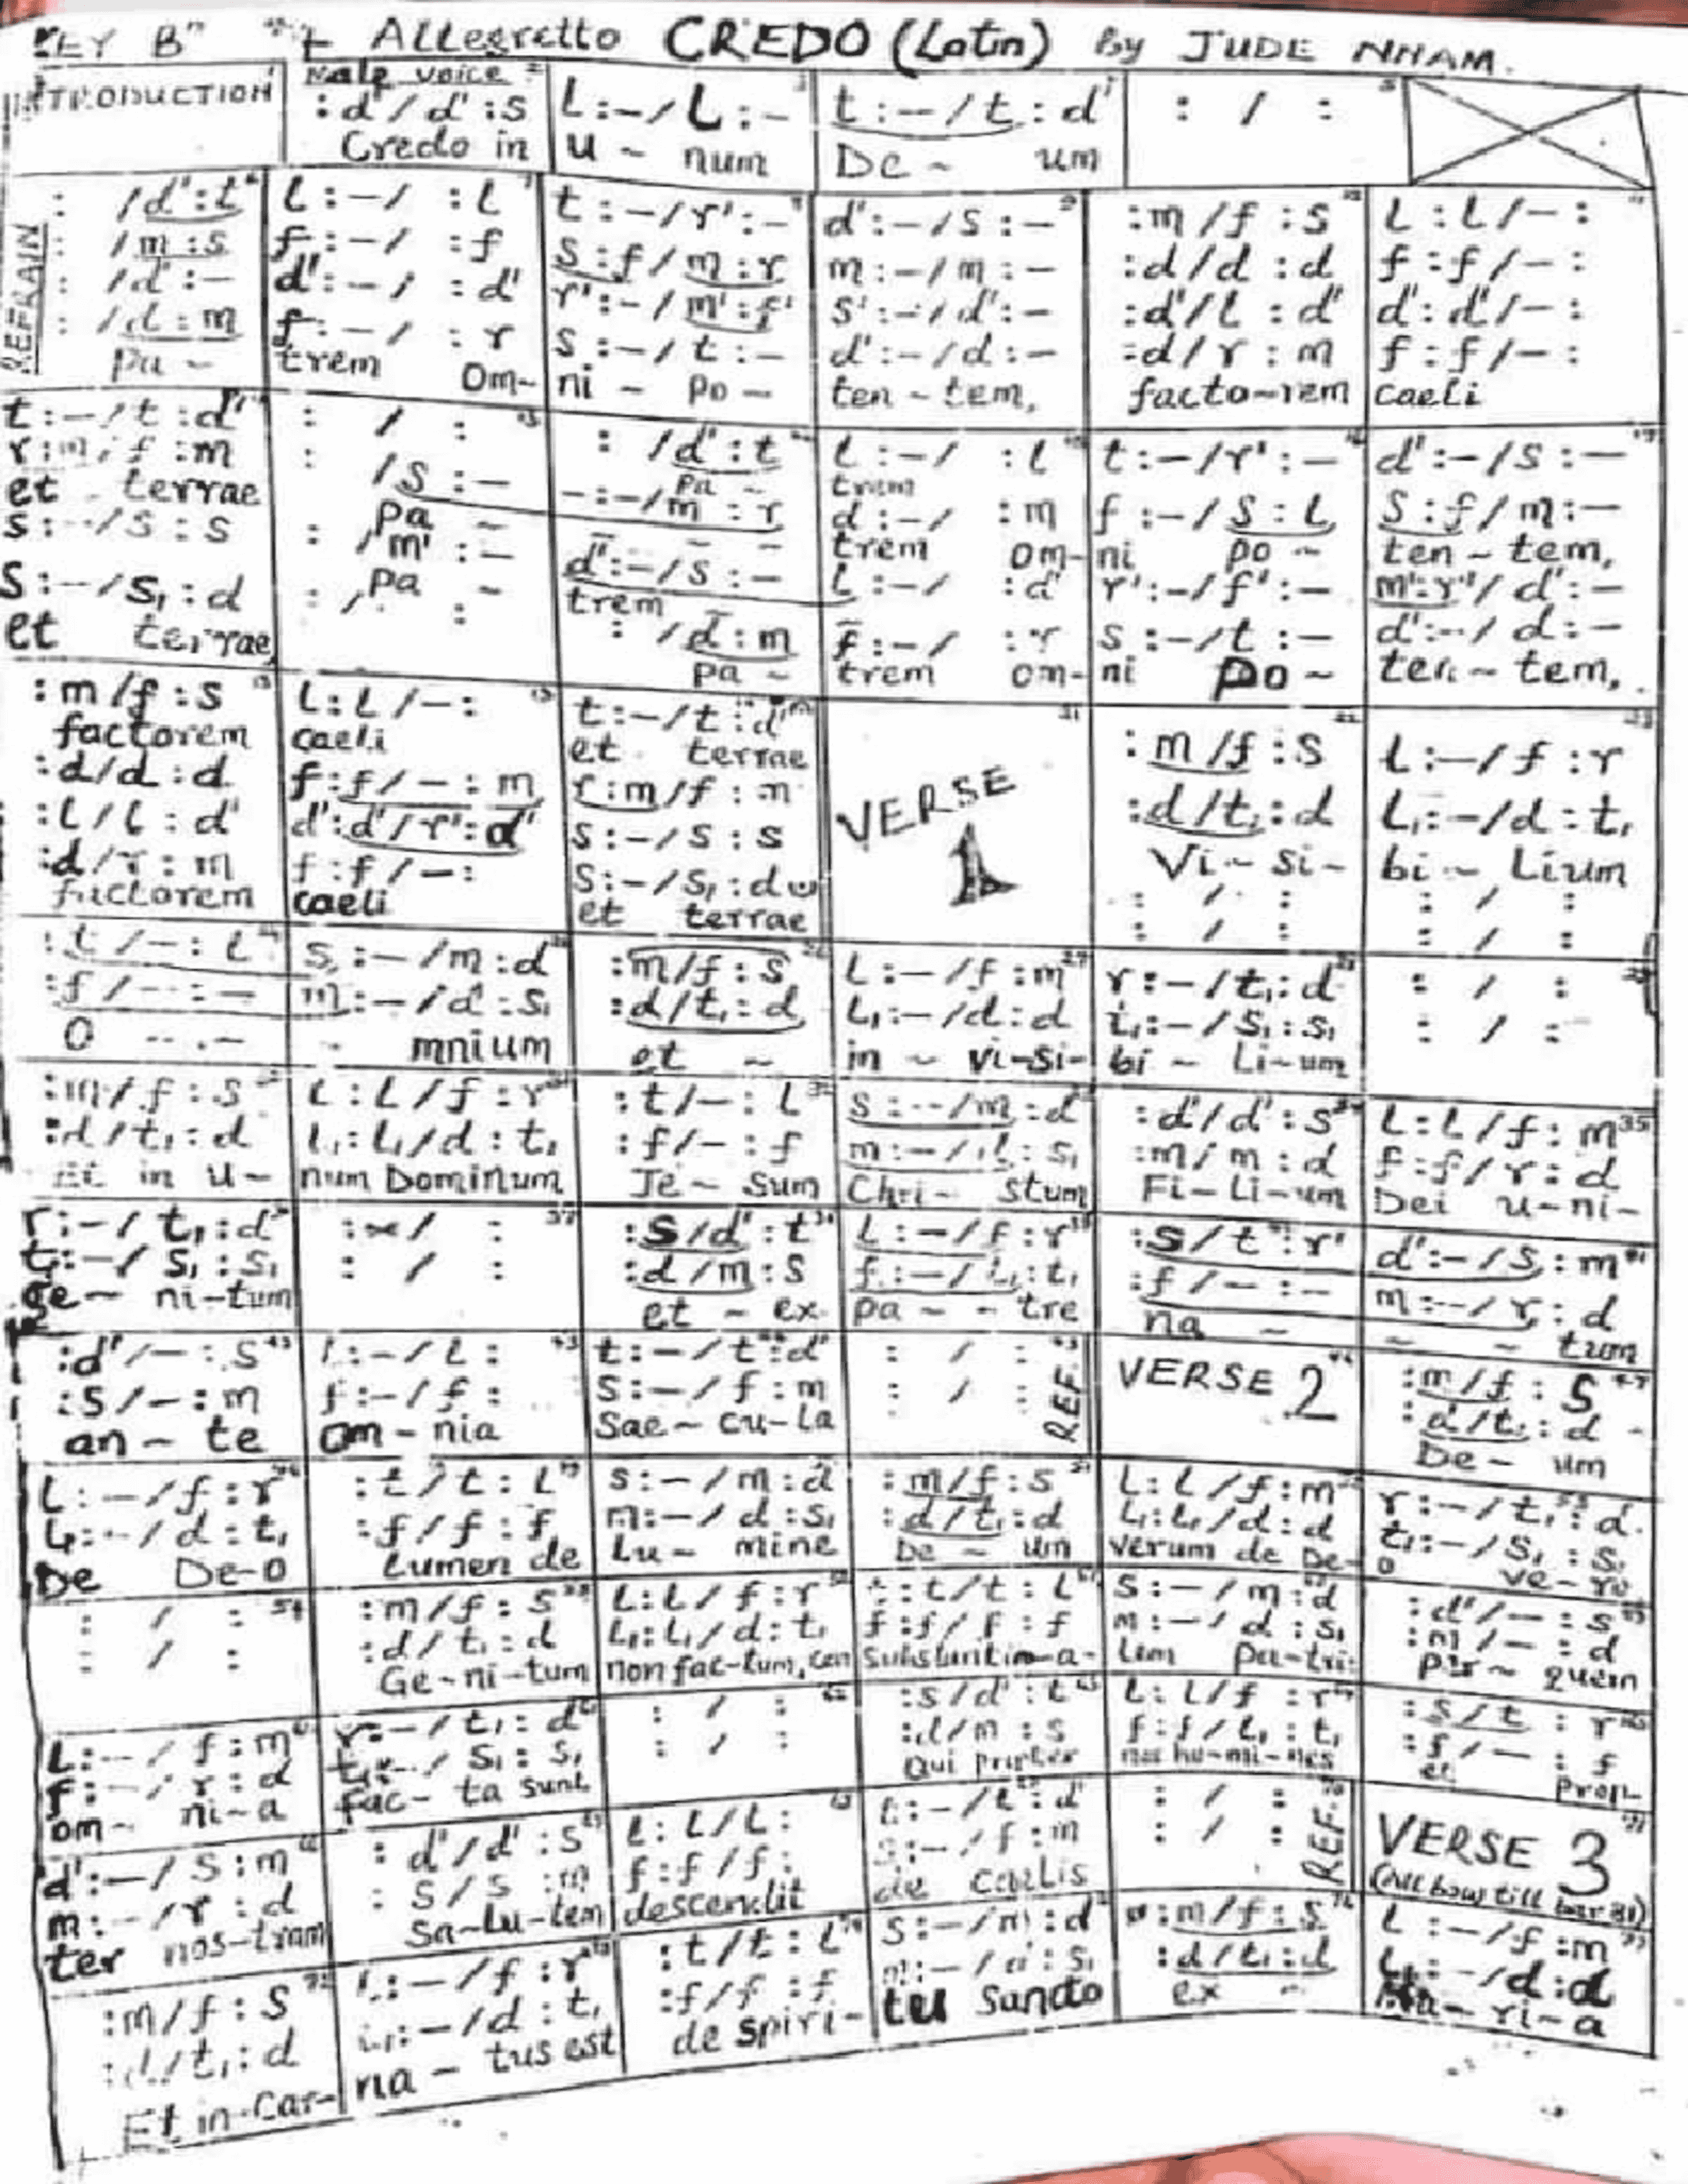 KEY B" Allegretto CREDO (Latin) By JUDE NNAM.
INTRODUCTION
Male voice
:d'/d':s
Credo in
L:-/L:-
u - num
t:-/t:d'
De - um
: / :
REFRAIN
: /d':t
: /m:s
: /d':-
: /d:m
pa -
l:-/ :l
f:-/ :f
d':-/ :d'
f:-/ :r
trem Om-
t:-/r':-
s:f/m:r
r':-/m':f'
s:-/t:-
ni - po -
d':-/s:-
m:-/m:-
s':-/d':-
d':-/d:-
ten - tem,
:m/f:s
:d/d:d
:d'/l:d'
:d/r:m
facto-rem
l:l/-:
f:f/-:
d':d'/-:
f:f/-:
caeli
t:-/t:d'
r:m/f:m
et terrae
s:-/s:s
s:-/s₁:d
et terrae
: / :
: /s:-
pa -
: /m':-
pa -
: / :
: /d':t
pa -
-:-/m:r
- - -
d':-/s:-
trem -
: /d:m
pa -
l:-/ :l
trem
d:-/ :m
trem om-
l:-/ :d'
f:-/ :r
trem om-
t:-/r':-
f:-/s:l
ni po -
r':-/f':-
s:-/t:-
ni po -
d':-/s:-
s:f/m:-
ten - tem,
m':r'/d':-
d':-/d:-
ten - tem,
:m/f:s
factorem
:d/d:d
:l/l:d'
:d/r:m
factorem
l:l/-:
caeli
f:f/-:m
d':d'/r':d'
f:f/-:
caeli
t:-/t:d'
et terrae
r:m/f:m
s:-/s:s
s:-/s₁:d
et terrae
VERSE
1
:m/f:s
:d/t₁:d
Vi - si -
: / :
: / :
l:-/f:r
l₁:-/d:t₁
bi - Lium
: / :
: / :
:t/-:l
:f/-:-
O - - -
s:-/m:d
m:-/d:s₁
- mnium
:m/f:s
:d/t₁:d
et -
l:-/f:m
l₁:-/d:d
in - vi-si-
r:-/t₁:d
t₁:-/s₁:s₁
bi - Li-um
: / :
: / :
:m/f:s
:d/t₁:d
Et in u-
l:l/f:r
l₁:l₁/d:t₁
num Dominum
:t/-:l
:f/-:f
Je - sum
s:-/m:d
m:-/d:s₁
Chri - stum
:d'/d':s
:m/m:d
Fi-Li-um
l:l/f:m 35
f:f/r:d
Dei u-ni-
r:-/t₁:d
t₁:-/s₁:s₁
ge - ni-tum
: / : 37
: / :
:s/d':t
:d/m:s
et - ex
l:-/f:r
f:-/l₁:t₁
pa - - tre
:s/t:r'
:f/-:-
na -
d':-/s:m
m:-/r:d
- - tum
:d'/-:s
:s/-:m
an - te
l:-/l:
f:-/f:
om - nia
t:-/t:d'
s:-/f:m
Sae - cu-la
: / :
: / :
REF.
VERSE 2
:m/f:s
:d/t₁:d
De - um
l:-/f:r
l₁:-/d:t₁
De De-o
:t/t:l
:f/f:f
Lumen de
s:-/m:d
m:-/d:s₁
Lu - mine
:m/f:s
:d/t₁:d
De - um
l:l/f:m
l₁:l₁/d:d
verum de De-
r:-/t₁:d
t₁:-/s₁:s₁
o ve-ro
: / : 54
: / :
:m/f:s
:d/t₁:d
Ge-ni-tum
l:l/f:r
l₁:l₁/d:t₁
non fac-tum, con
:t/t:l
f:f/f:f
s:-/m:d
m:-/d:s₁
lem pa-tri:
:d'/-:s
:m/-:d
per - quem
l:-/f:m
f:-/r:d
om- ni-a
r:-/t₁:d
t₁:-/s₁:s₁
fac- ta sunt
: / :
: / :
:s/d':t
:d/m:s
Qui propter
l:l/f:r
f:f/l₁:t₁
nos ho-mi-nes
:s/t:r'
:f/-:f
et prop-
d':-/s:m
m:-/r:d
ter nos-tram
:d'/d':s
:s/s:m
Sa-Lu-tem
l:l/l:
f:f/f:
descendit
t:-/t:d'
s:-/f:m
de caelis
: / :
: / :
REF.
VERSE 3
(All bow till bar 81)
:m/f:s
:d/t₁:d
Et in-Car-
l:-/f:r
l₁:-/d:t₁
na - tus est
:t/t:l
:f/f:f
de spiri-
s:-/m:d
m:-/d:s₁
tu Sancto
:m/f:s
:d/t₁:d
ex -
l:-/f:m
l₁:-/d:d
Ma-ri-a